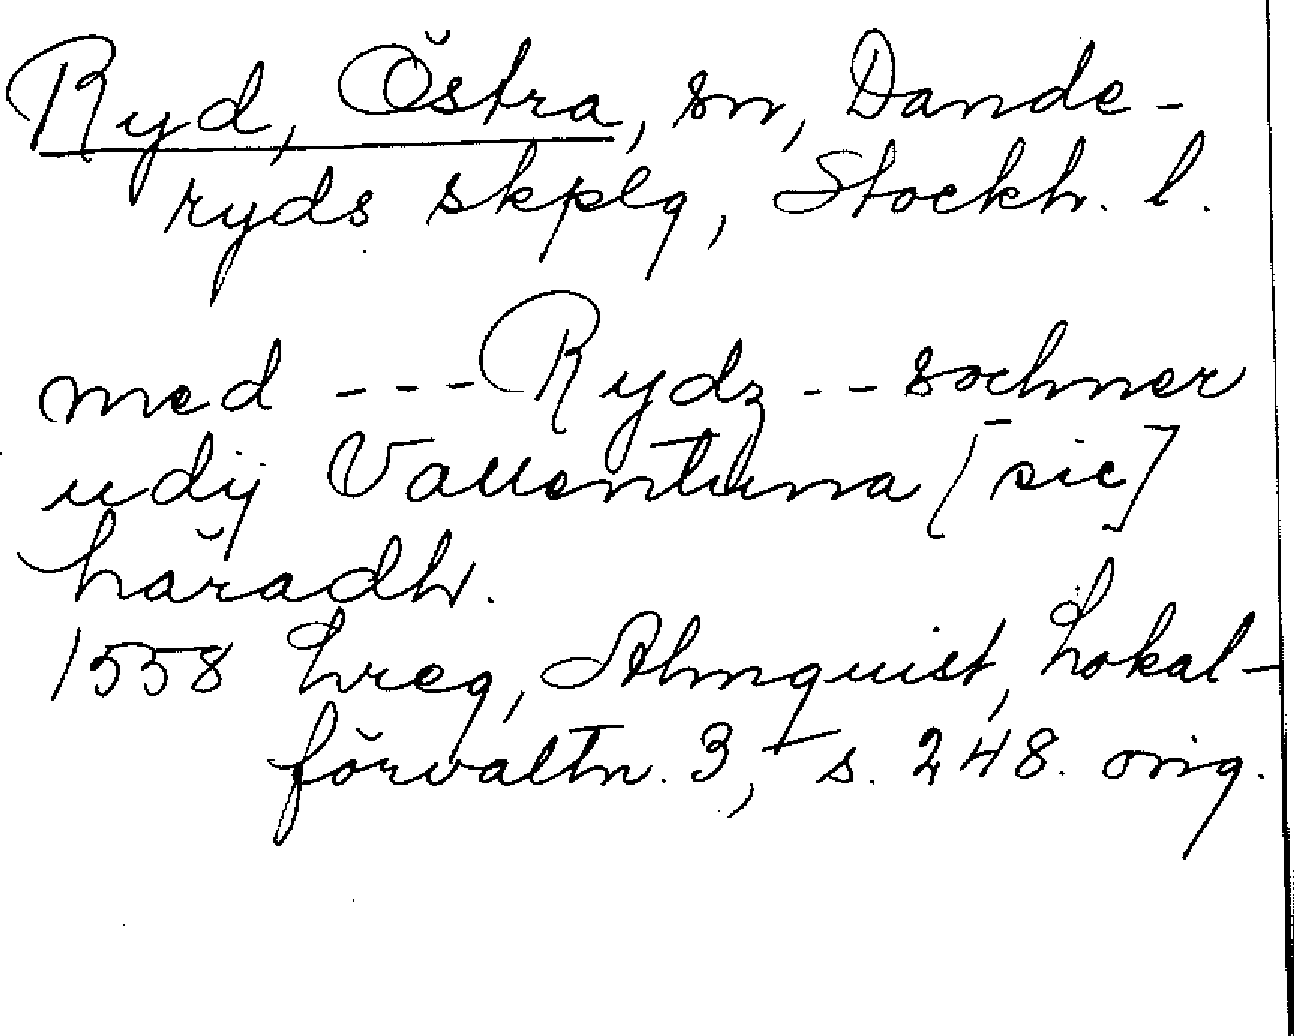 Ryd, Östra, sn, Dande-
ryds skplg, Stockh. l.
med --- Rydz -- sochner
udij Vallentuna [sic]
häradh.
1558 hreg, Almquist, Lokal-
förvaltn. 3, s. 248. orig.